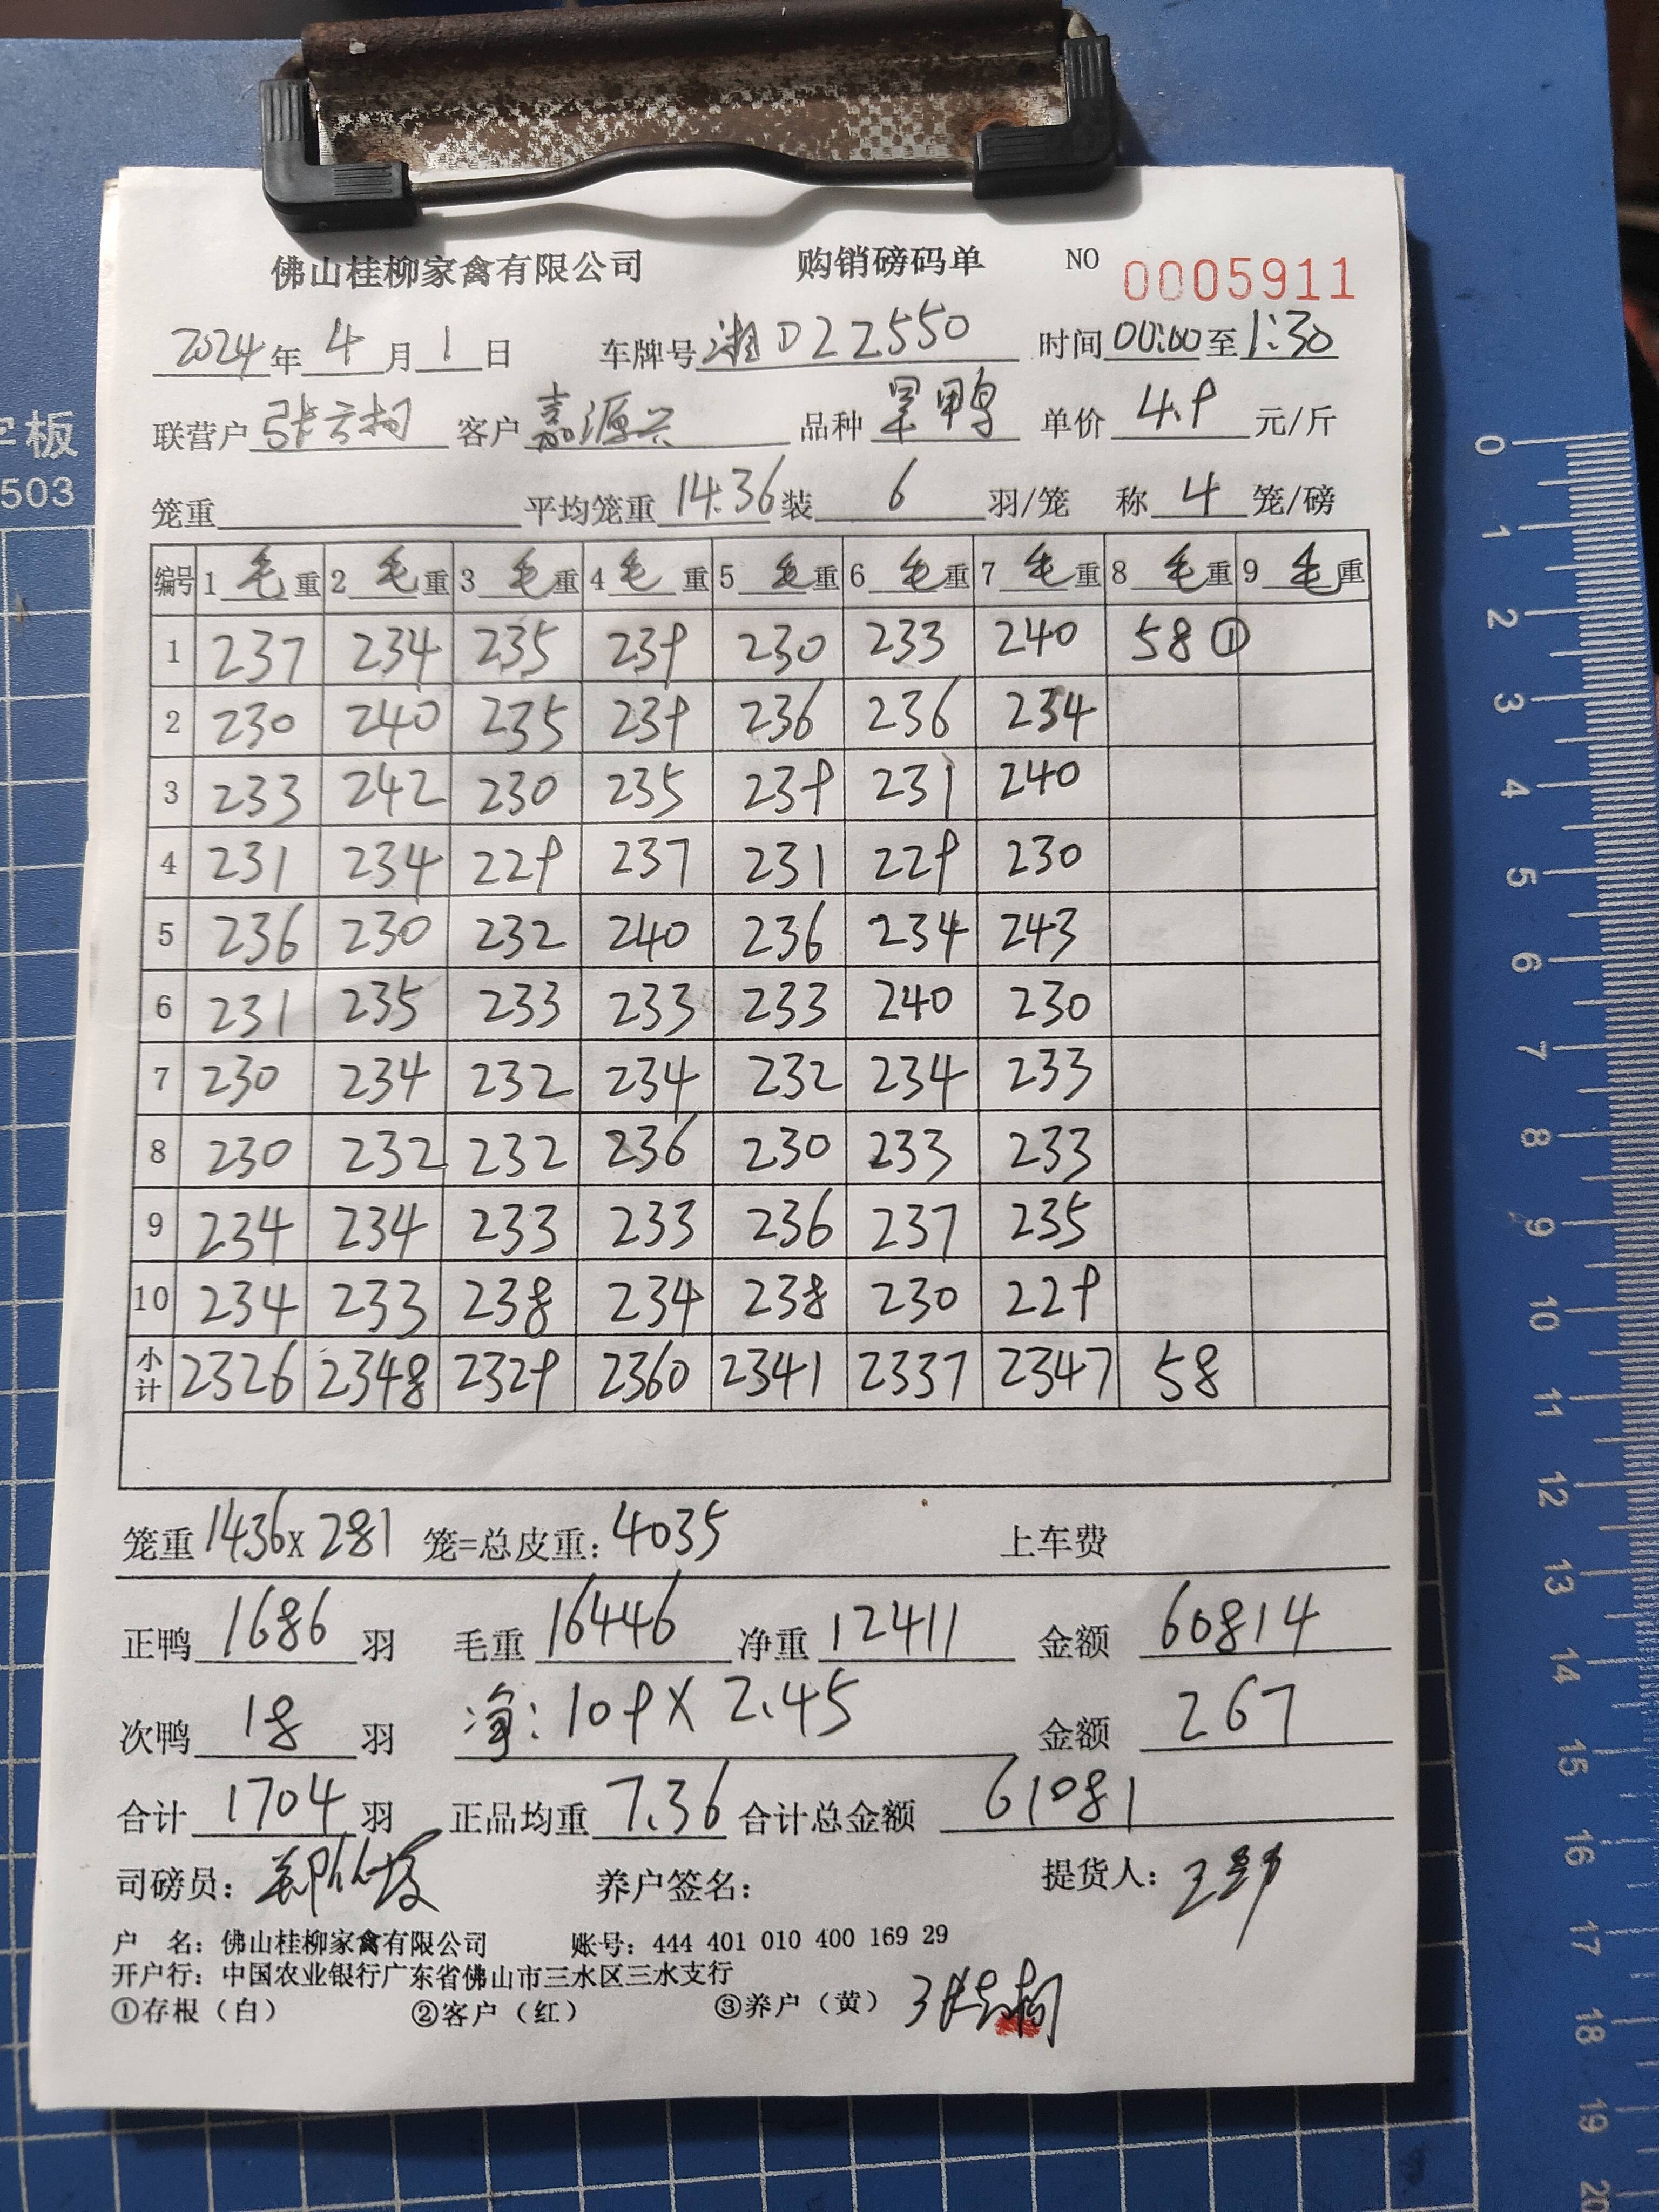 佛山桂柳家禽有限公司 购销磅码单 NO 0005911
2024年4月1日 车牌号湘D22550 时间00:00至1:30
联营户 客户嘉源兴 品种 鸭 单价4.9元/斤
笼重 平均笼重14.36装6羽/笼 称4笼/磅
编号 1毛重 2毛重 3毛重 4毛重 5毛重 6毛重 7毛重 8毛重 9毛重
1 237 234 235 239 230 233 240 58①
2 230 240 235 239 236 236 234
3 233 242 230 235 239 231 240
4 231 234 229 237 231 229 230
5 236 230 232 240 236 234 243
6 231 235 233 233 233 240 230
7 230 234 232 234 232 234 233
8 230 232 232 236 230 233 233
9 234 234 233 233 236 237 235
10 234 233 238 234 238 230 229
小计 2326 2348 2329 2360 2341 2337 2347 58
笼重14.36x281笼=总皮重:4035 上车费
正鸭1686羽 毛重16446净重12411 金额60814
次鸭18羽 净:109X2.45 金额267
合计1704羽 正品均重7.36合计总金额61081
司磅员: 养户签名: 提货人:
户 名:佛山桂柳家禽有限公司 账号:444 401 010 400 169 29
开户行:中国农业银行广东省佛山市三水区三水支行
①存根(白) ②客户(红) ③养户(黄)
字板
503
0
1
2
3
4
5
6
7
8
9
10
11
12
13
14
15
16
17
18
19
20